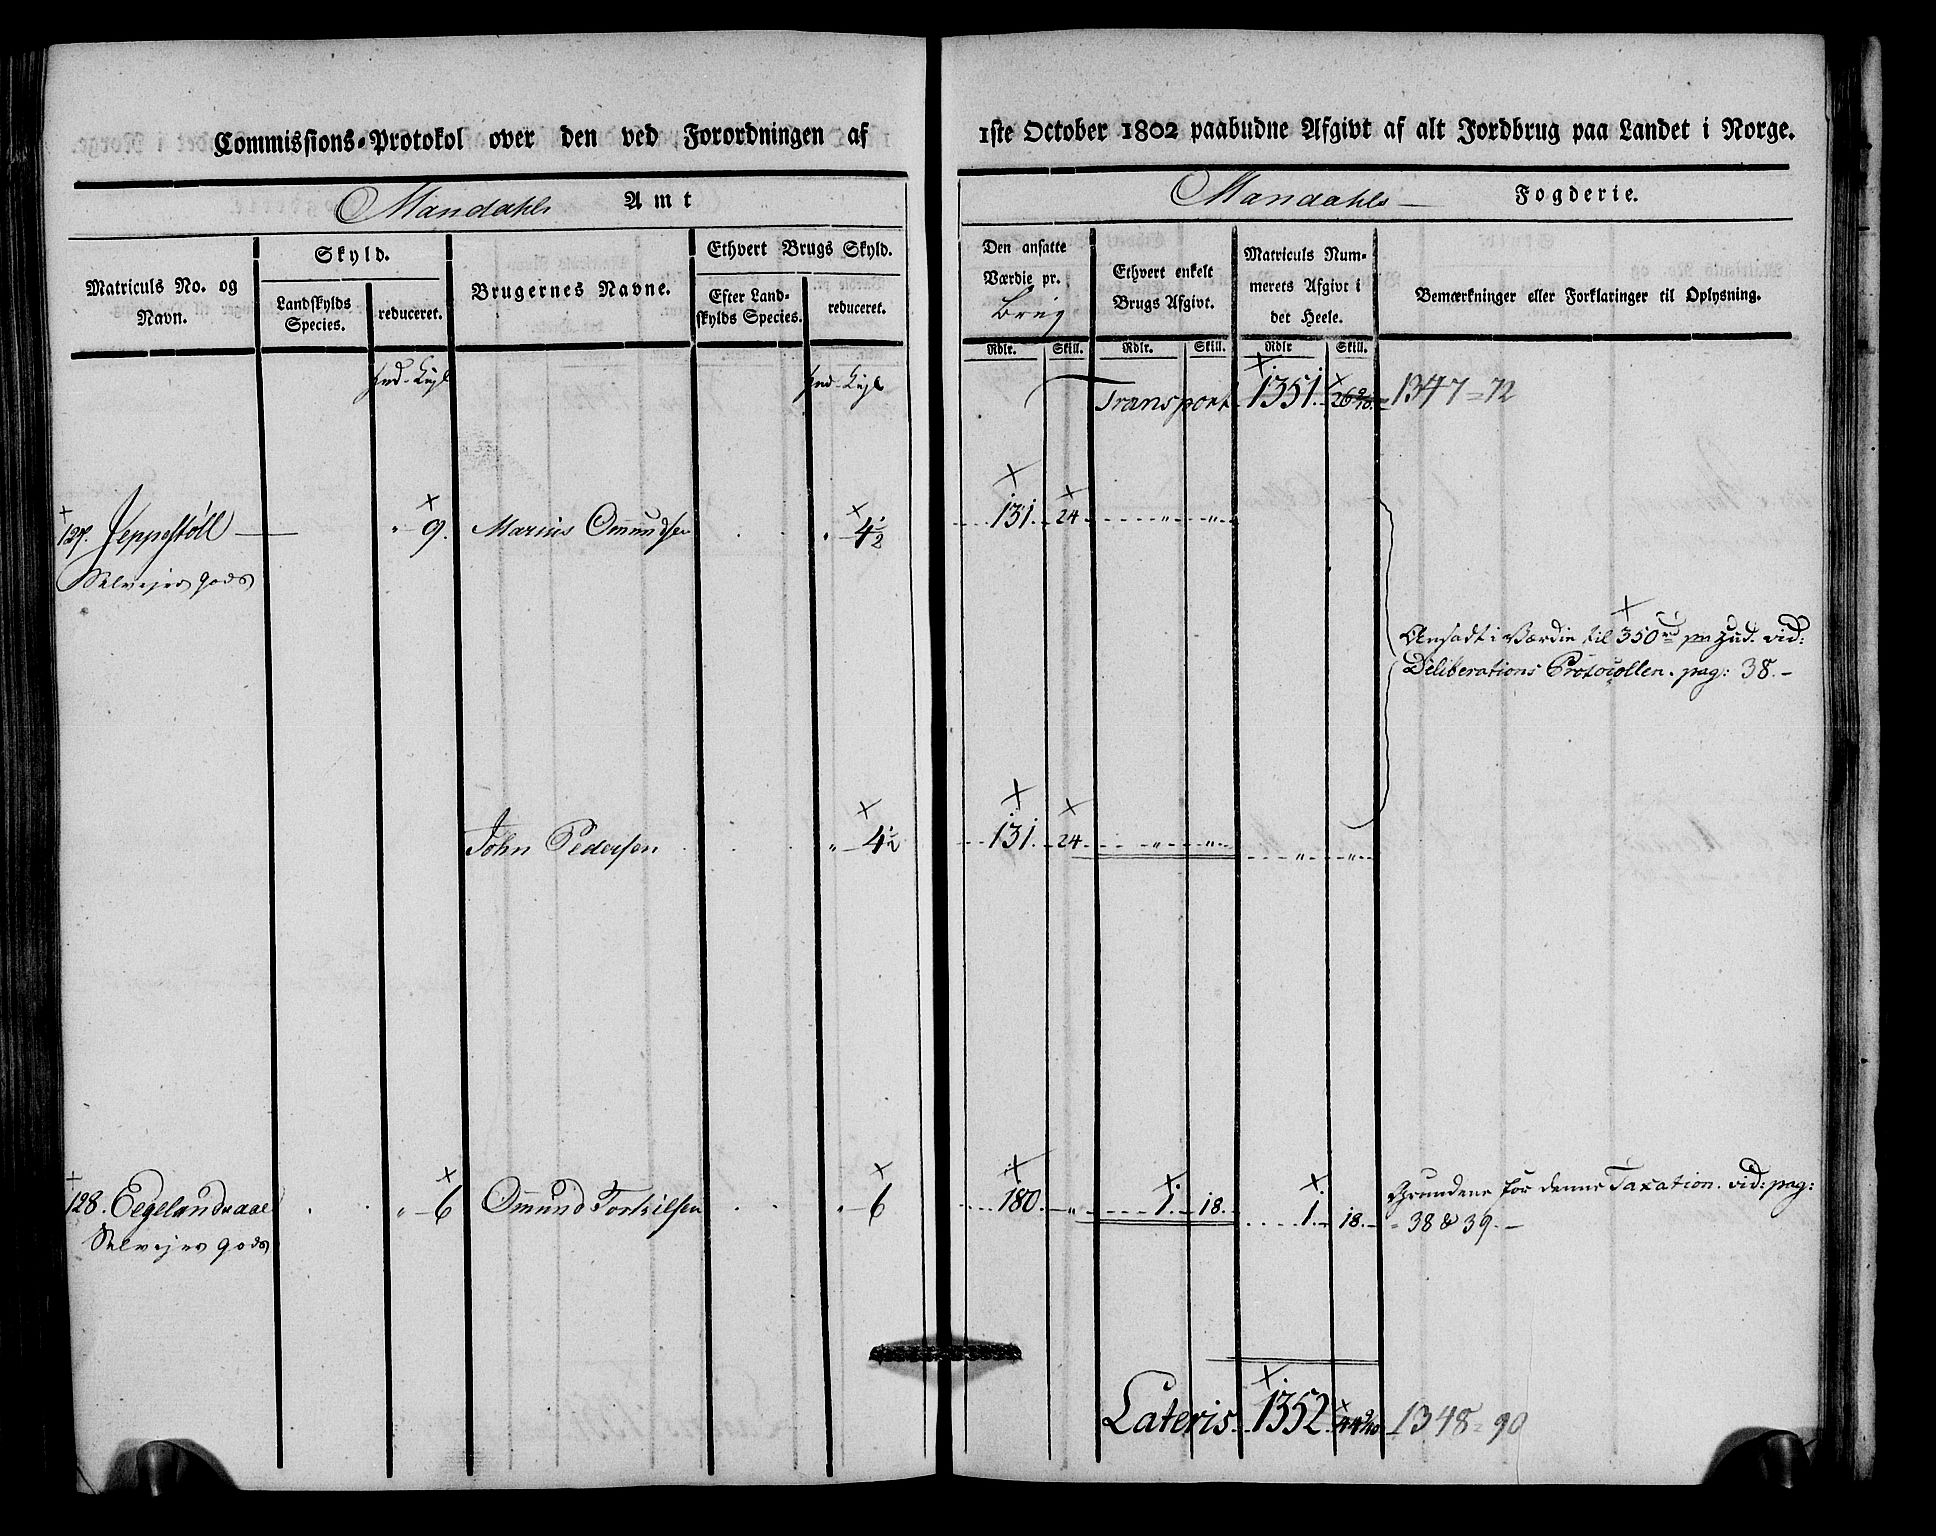 Commissions-Protokol over den ved Forordningen af
1ste October 1802 paabudne Afgivt af alt Jordbrug paa Landet i Norge.
Mandahls Amt
Mandahls Fogderie.
Matriculs No. og
Navn.
Skyld.
Landskylds
Species.
reduceret.
Brugernes Navne.
Ethvert Brugs Skyld.
Efter Land-
skylds Species.
reduceret.
Den ansatte
Værdie pr.
Brug
Ethvert enkelt
Brugs Afgivt.
Matriculs Num-
merets Afgivt i
det Heele.
Bemærkninger eller Forklaringer til Oplysning.
Rdlr. Skill. Rdlr. Skill. Rdlr Skill.
Transport 1351. 1347 = 72
127. Jeppestöll — " 9. Marius Omundsen " 4½ 131. 24 " "
Selvejer gods
Ansadt i Værdie til 350 rd pr Hud. vid:
Deliberations Protocollen. pag: 38.-
John Pedersen " 4½ 131. 24 " " " "
128. Eegelandsaae " 6 Omund Torkilsen " 6 180. " 1. 18. 1. 18. Grundene for denne Taxation. vid: pag:
Selvejer gods
38 & 39.-
Lateris. 1352. 1348 = 90